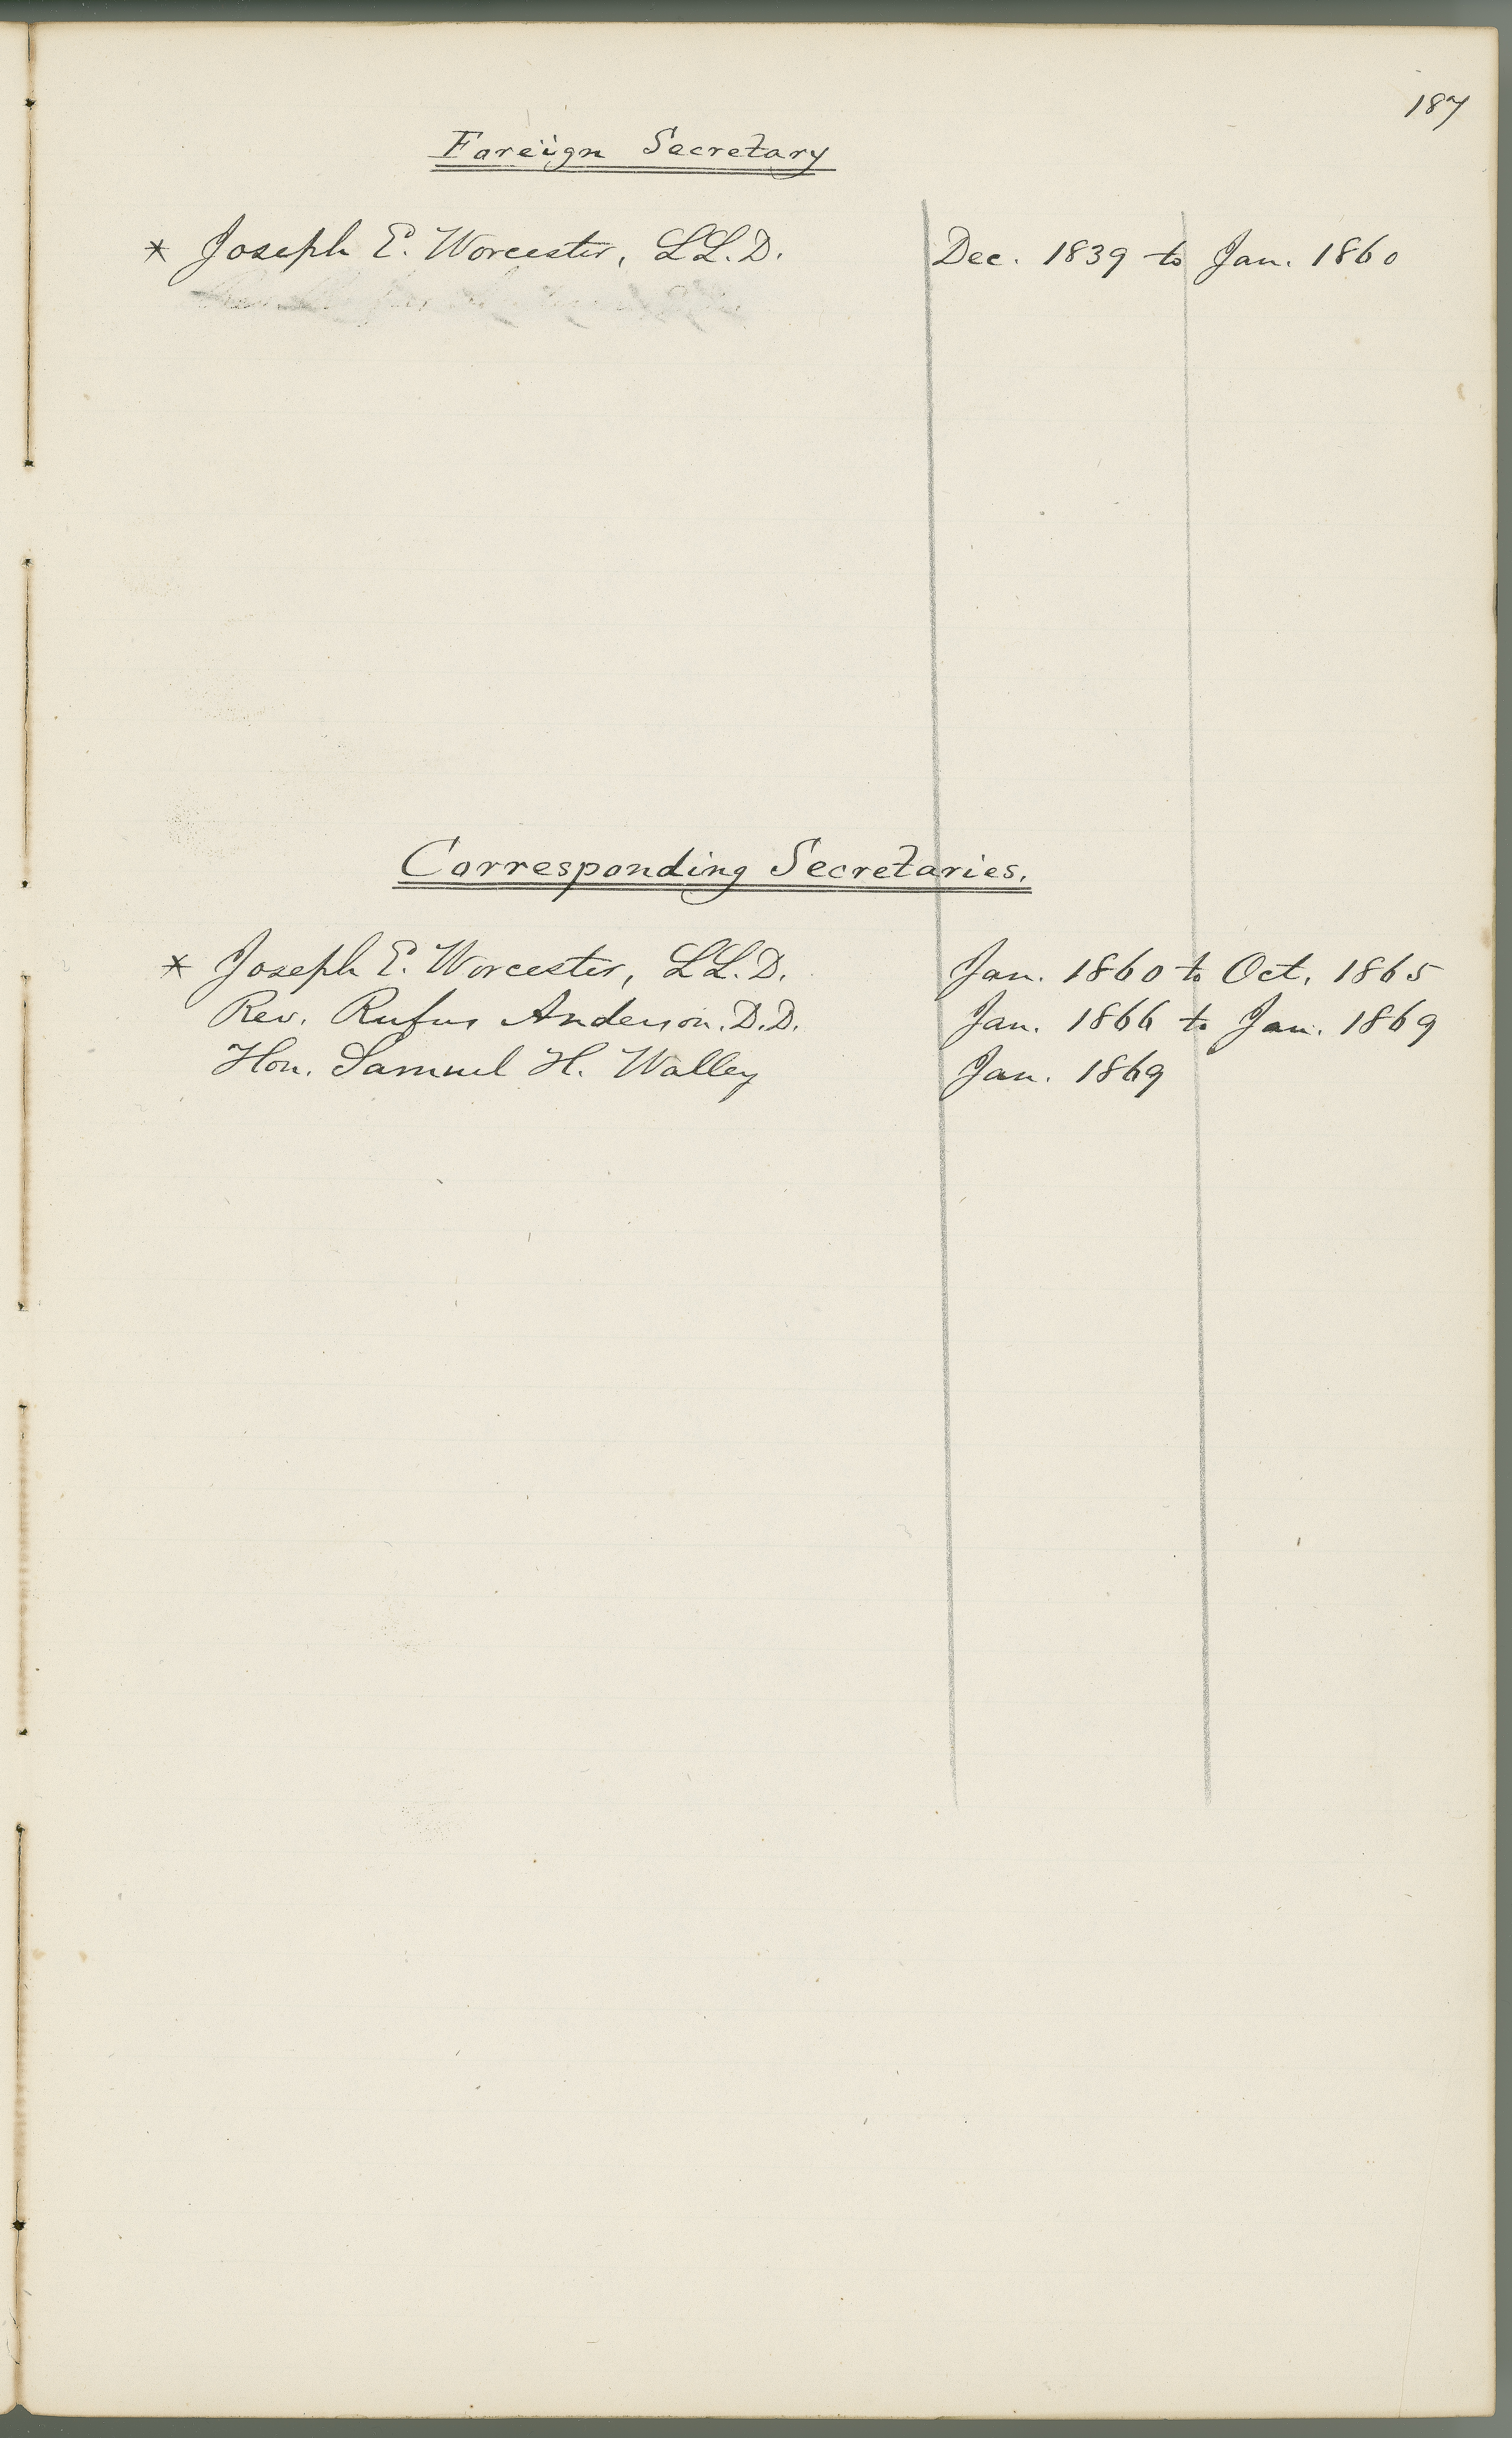 187
Foreign Secretary
* Joseph E. Worcester, LL.D. Dec. 1839 to Jan. 1860
Corresponding Secretaries.
* Joseph E. Worcester, LL.D. Jan. 1860 to Oct. 1865
Rev. Rufus Anderson. D.D. Jan. 1866 to Jan. 1869
Hon. Samuel H. Walley Jan. 1869